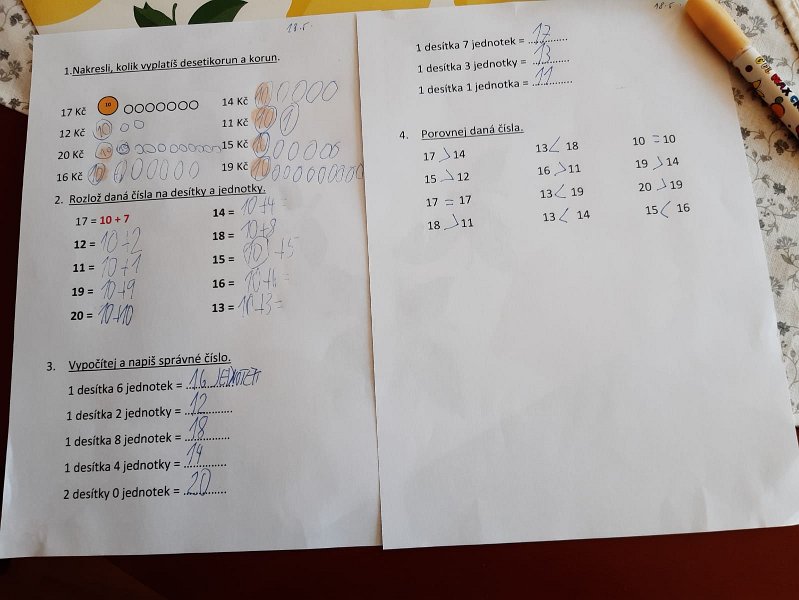 18.5.
1.Nakresli, kolik vyplatíš desetikorun a korun.
17 Kč 10
14 Kč 10
12 Kč 10
11 Kč 10 1
20 Kč 10
15 Kč 10
16 Kč 10
19 Kč 10
2. Rozlož daná čísla na desítky a jednotky.
17 = 10 + 7
14 = 10+4 =
12 = 10+2
18 = 10+8
11 = 10+1
15 = 10 +5
19 = 10+9
16 = 10+6 =
20 = 10+10
13 = 10+3 =
3. Vypočítej a napiš správné číslo.
1 desítka 6 jednotek = 16 JEDNOTEK
1 desítka 2 jednotky = 12
1 desítka 8 jednotek = 18
1 desítka 4 jednotky = 14
2 desítky 0 jednotek = 20
18.5.
1 desítka 7 jednotek = 17
1 desítka 3 jednotky = 13
1 desítka 1 jednotka = 11
4. Porovnej daná čísla.
17 > 14 13 < 18 10 = 10
15 > 12 16 > 11 19 > 14
17 = 17 13 < 19 20 > 19
18 > 11 13 < 14 15 < 16